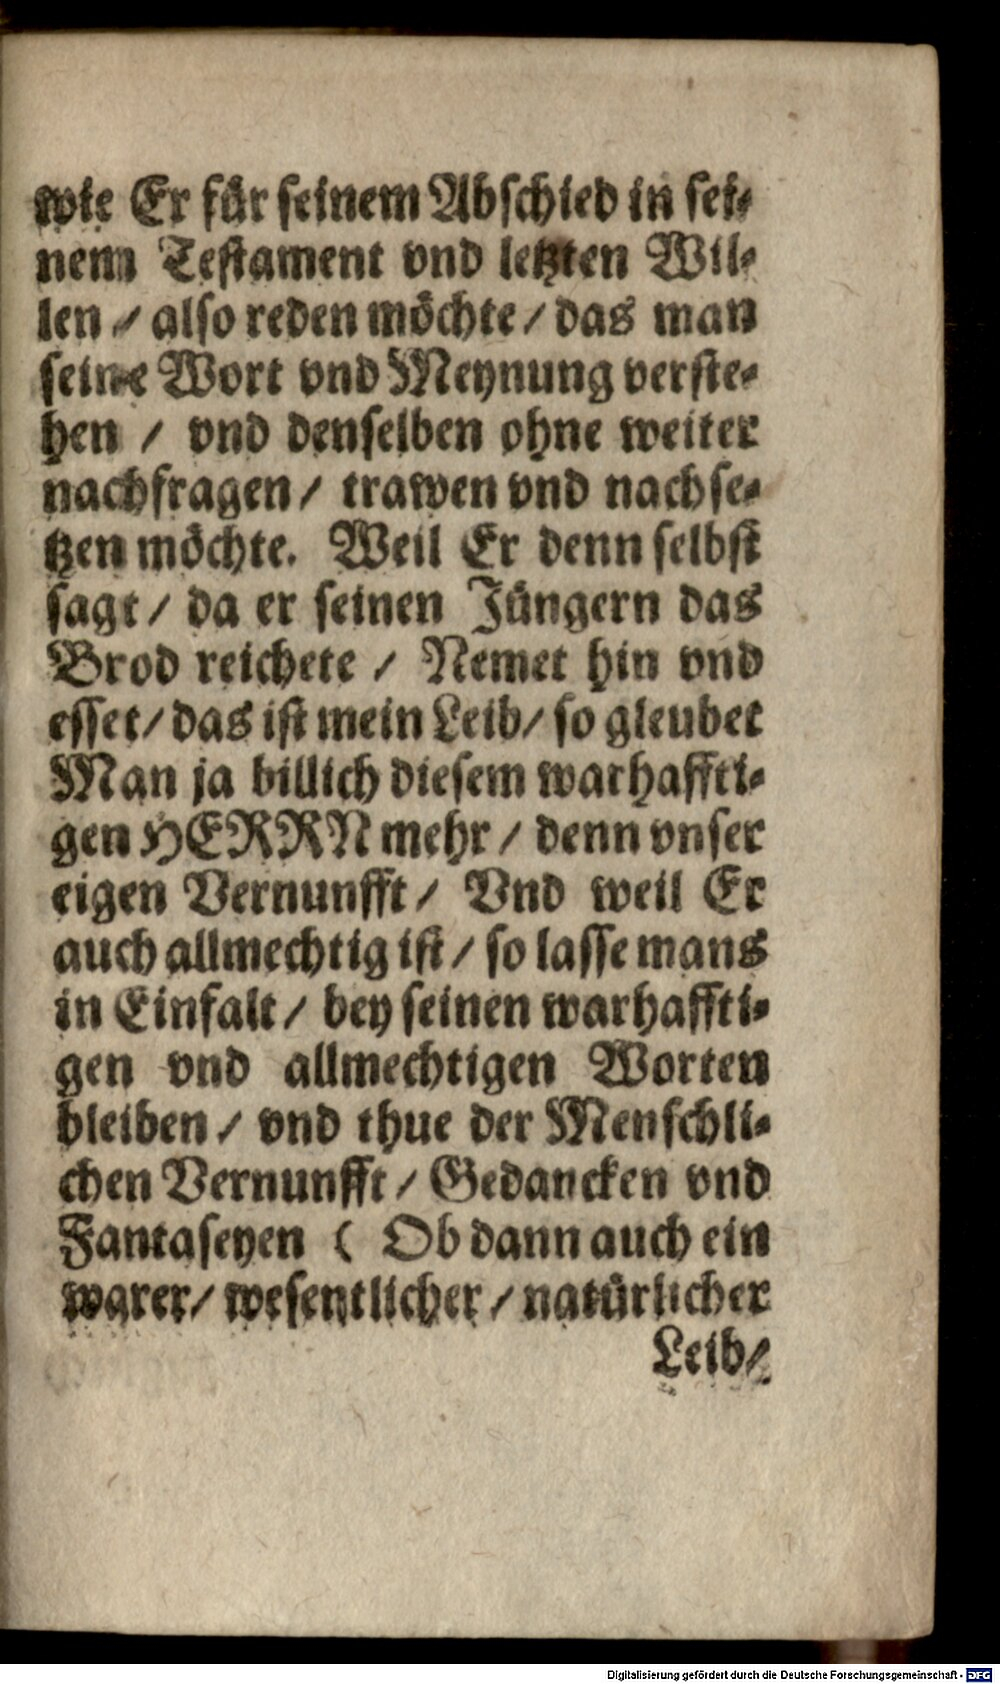 wie Er für seinem Abschied in sei-
nem Testament vnd letzten Wil-
len / also reden möchte / das man
seine Wort vnd Meynung verste-
hen / vnd denselben ohne weiter
nachfragen / trawen vnd nachse-
tzen möchte. Weil Er denn selbst
sagt / da er seinen Jüngern das
Brod reichete / Nemet hin vnd
esset / das ist mein Leib / so gleubet
Man ja billich diesem warhaffti-
gen HERRN mehr / denn vnser
eigen Vernunfft / Vnd weil Er
auch allmechtig ist / so lasse mans
in Einfalt / bey seinen warhaffti-
gen vnd allmechtigen Worten
bleiben / vnd thue der Menschli-
chen Vernunfft / Gedancken vnd
Fantaseyen ( Ob dann auch ein
warer / wesentlicher / natürlicher
Leib /
Digitalisierung gefördert durch die Deutsche Forschungsgemeinschaft - DFG